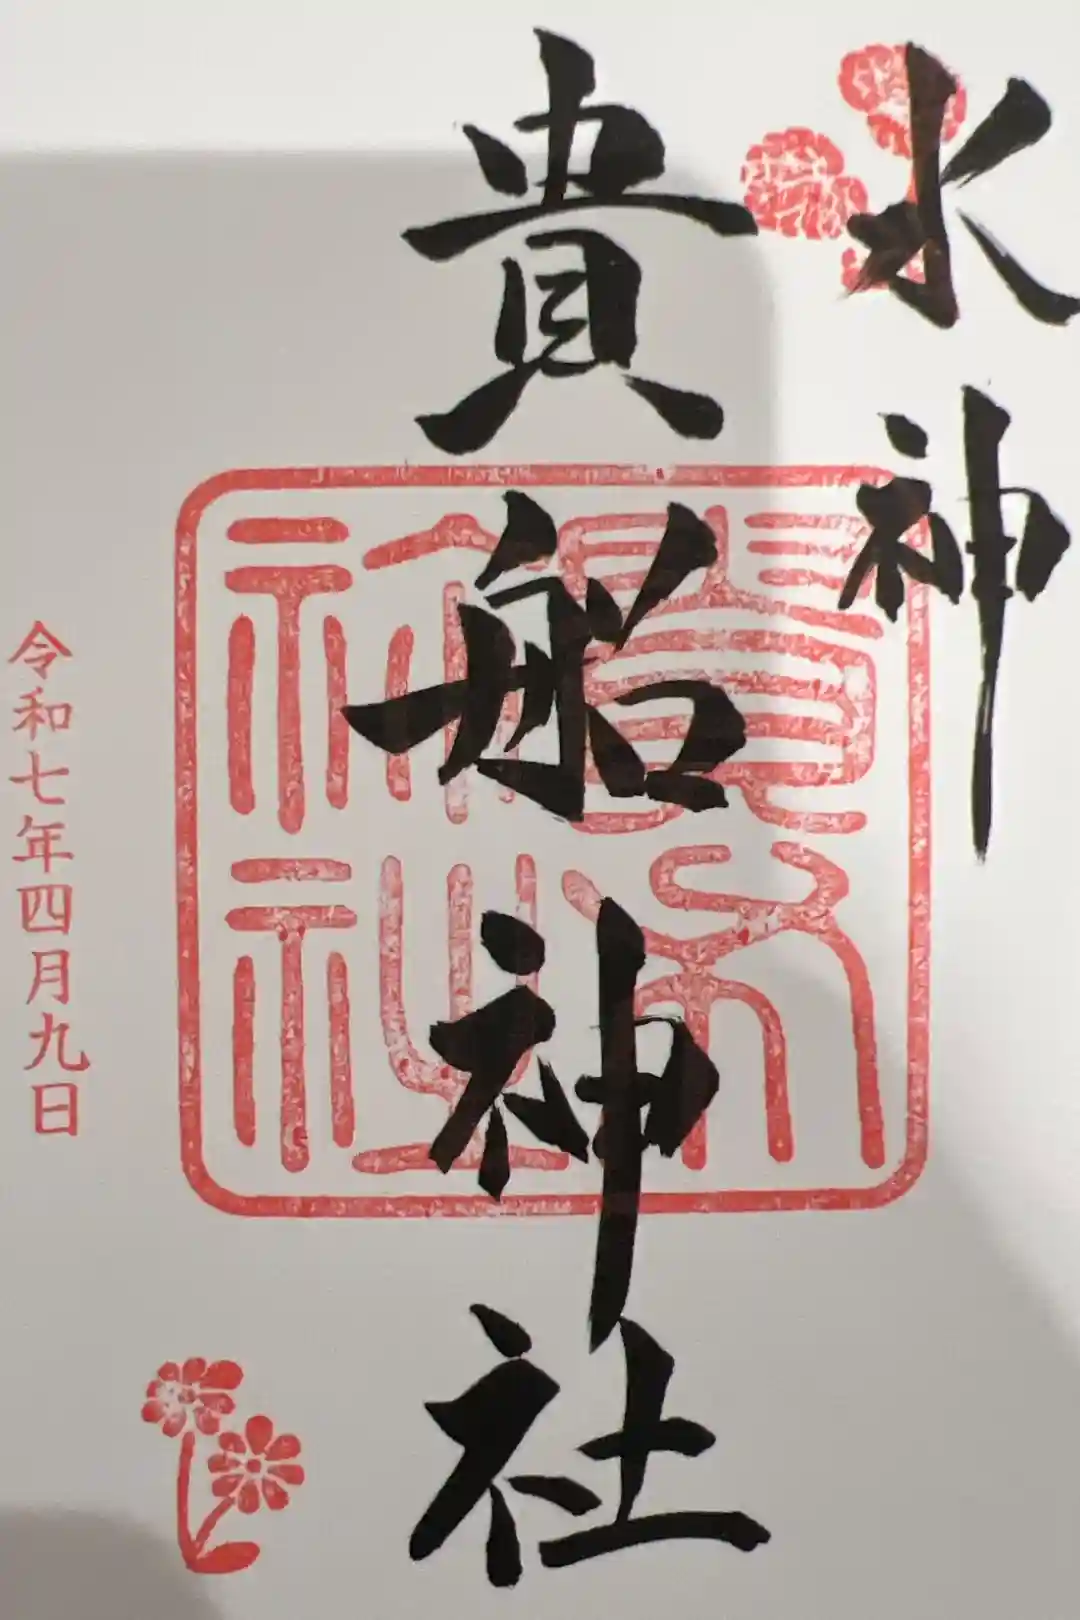 水神
貴船神社
貴船神社
令和七年四月九日